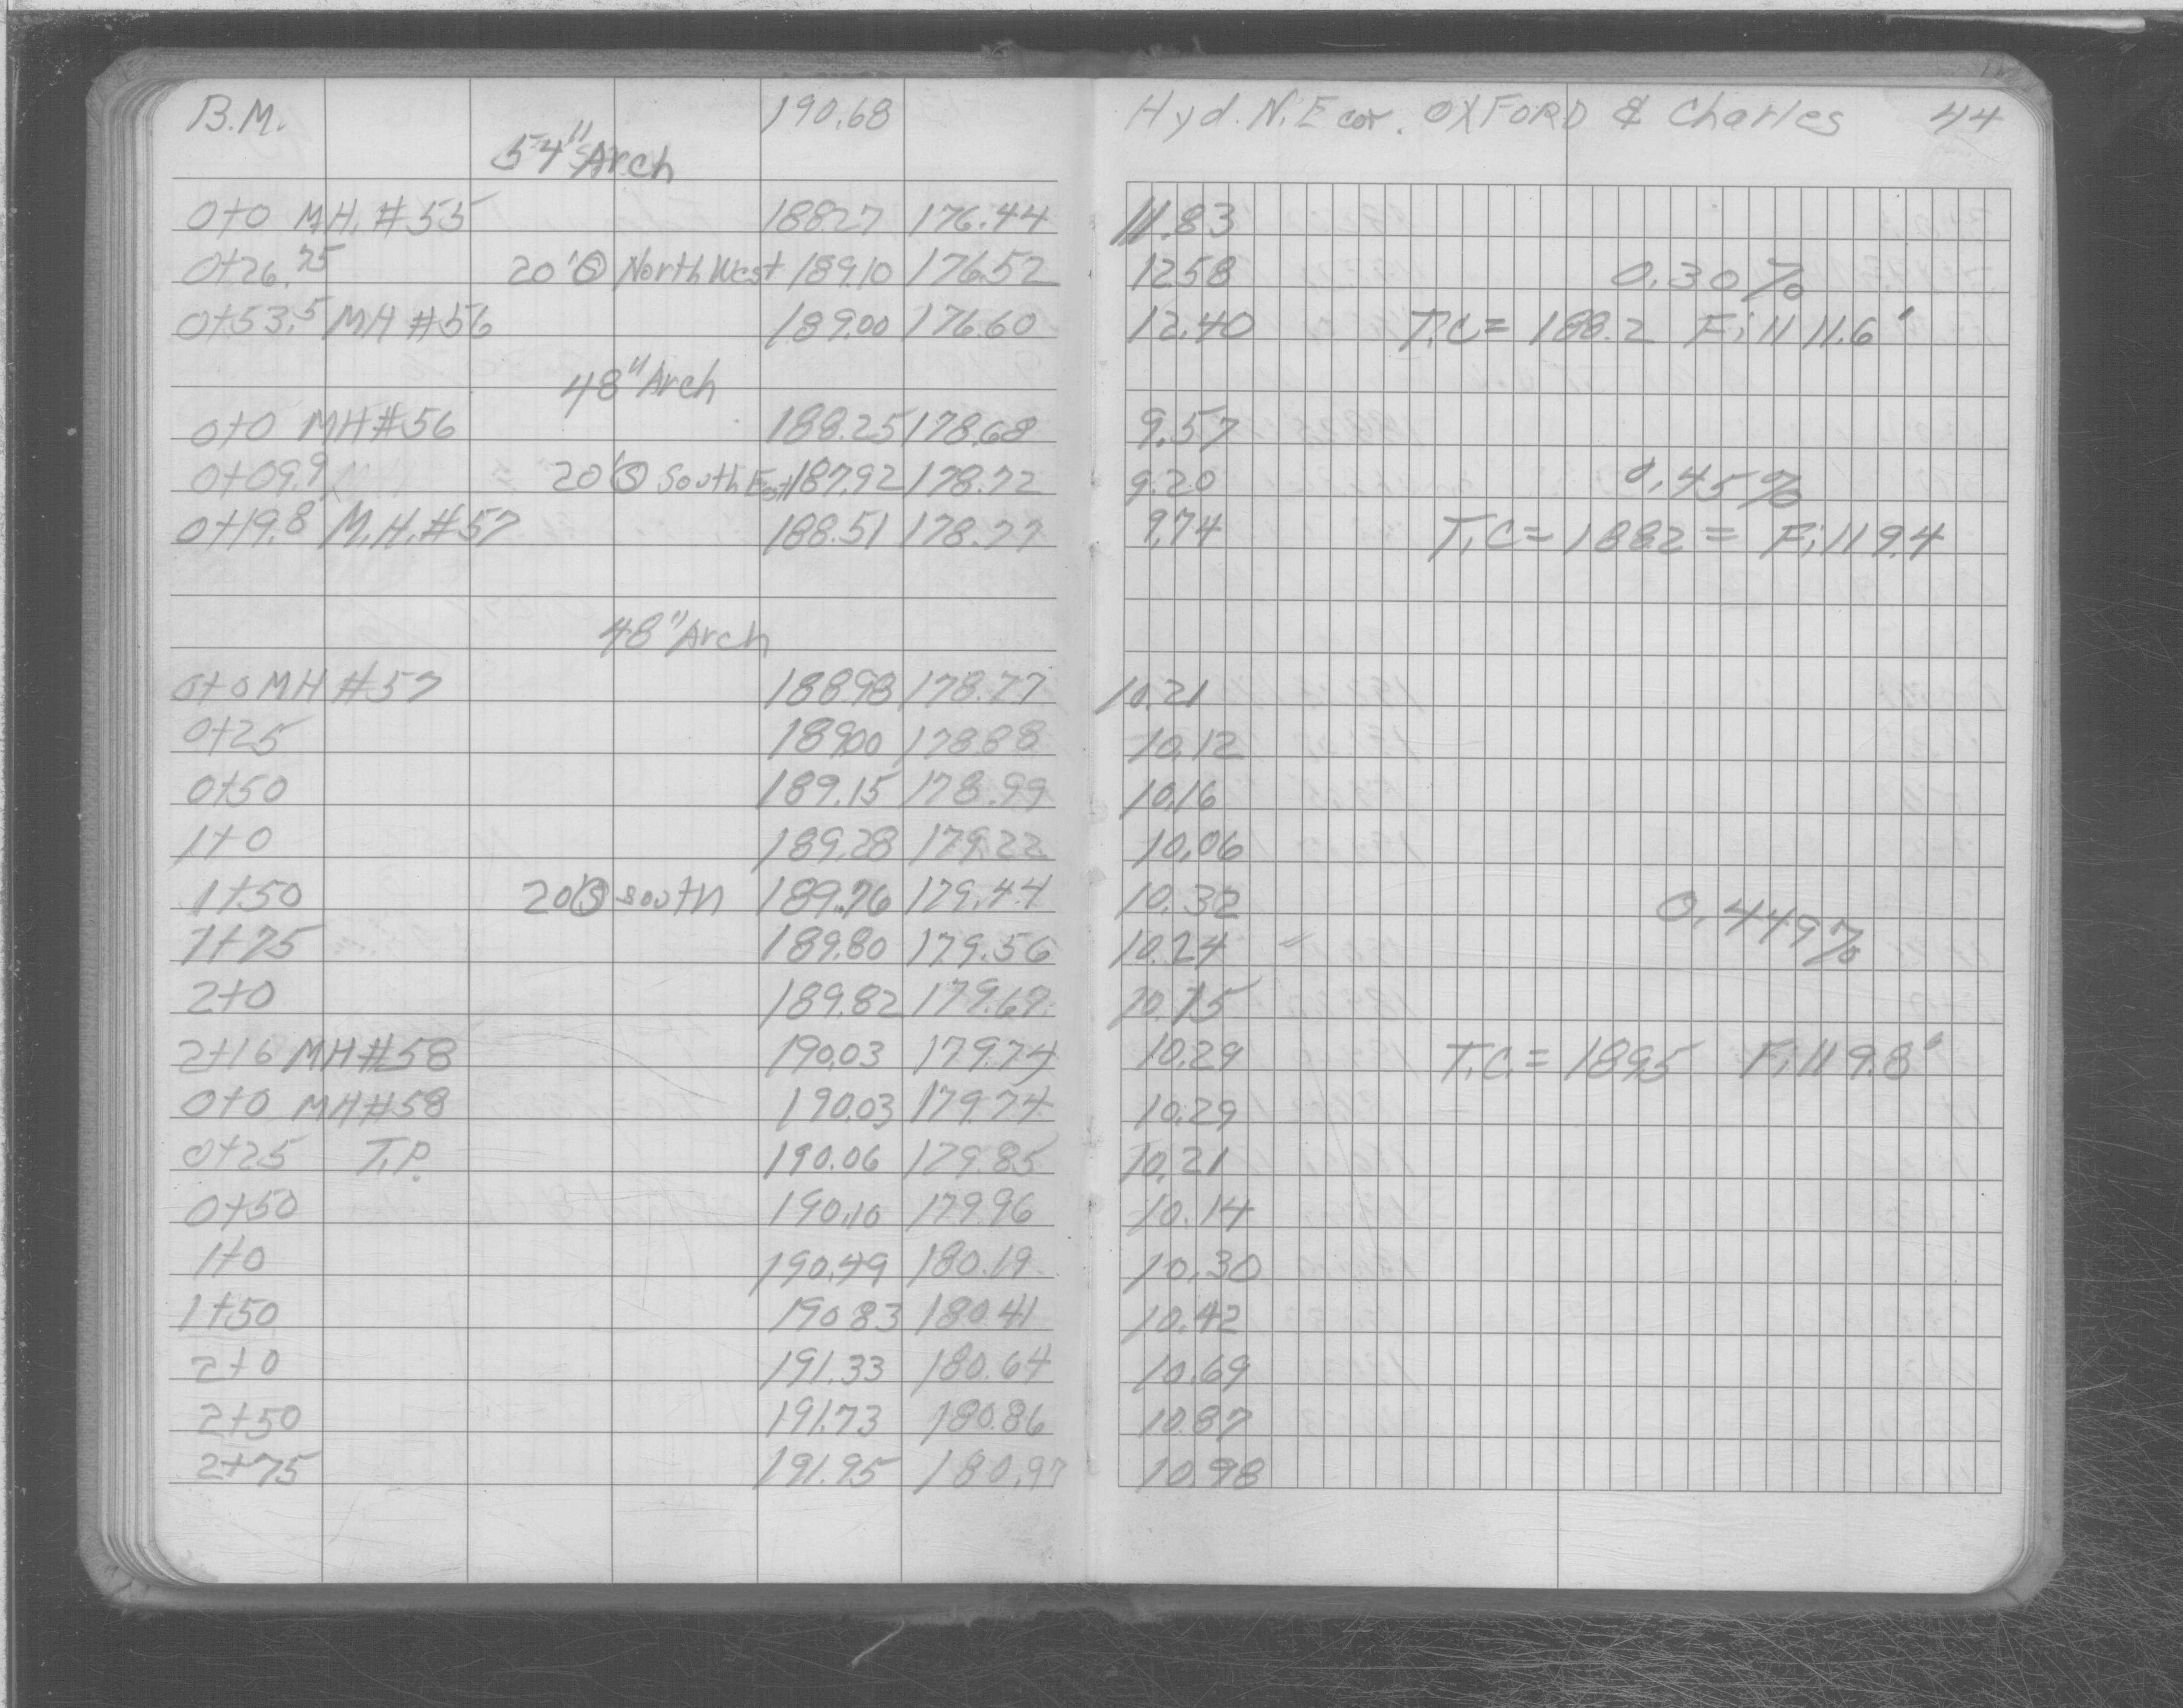 B.M. 190.68 Hyd. N.E cor. OXFORD & Charles 44
54" Arch
0+0 MH. #55 188.27 176.44 11.83
0+26.75 20' Ⓢ North West 189.10 176.52 12.58 0.30%
0+53.5 MH #56 189.00 176.60 12.40 T.C = 188.2 Fill 11.6'
48" Arch
0+0 MH #56 188.25 178.68 9.57
0+09.9 20' Ⓢ South East 187.92 178.72 9.20 0.45%
0+19.8 M.H. #57 188.51 178.77 9.74 T.C = 188.2 = Fill 9.4
48" Arch
0+0 MH #57 188.98 178.77 10.21
0+25 189.00 178.88 10.12
0+50 189.15 178.99 10.16
1+0 189.28 179.22 10.06
1+50 20' Ⓢ South 189.76 179.44 10.32 0.449%
1+75 189.80 179.56 10.24
2+0 189.82 179.67 10.15
2+16 MH #58 190.03 179.74 10.29 T.C. = 189.5 Fill 9.8'
0+0 MH #58 190.03 179.74 10.29
0+25 T.P. 190.06 179.85 10.21
0+50 190.10 179.96 10.14
1+0 190.49 180.19 10.30
1+50 190.83 180.41 10.42
2+0 191.33 180.64 10.69
2+50 191.73 180.86 10.87
2+75 191.95 180.97 10.98